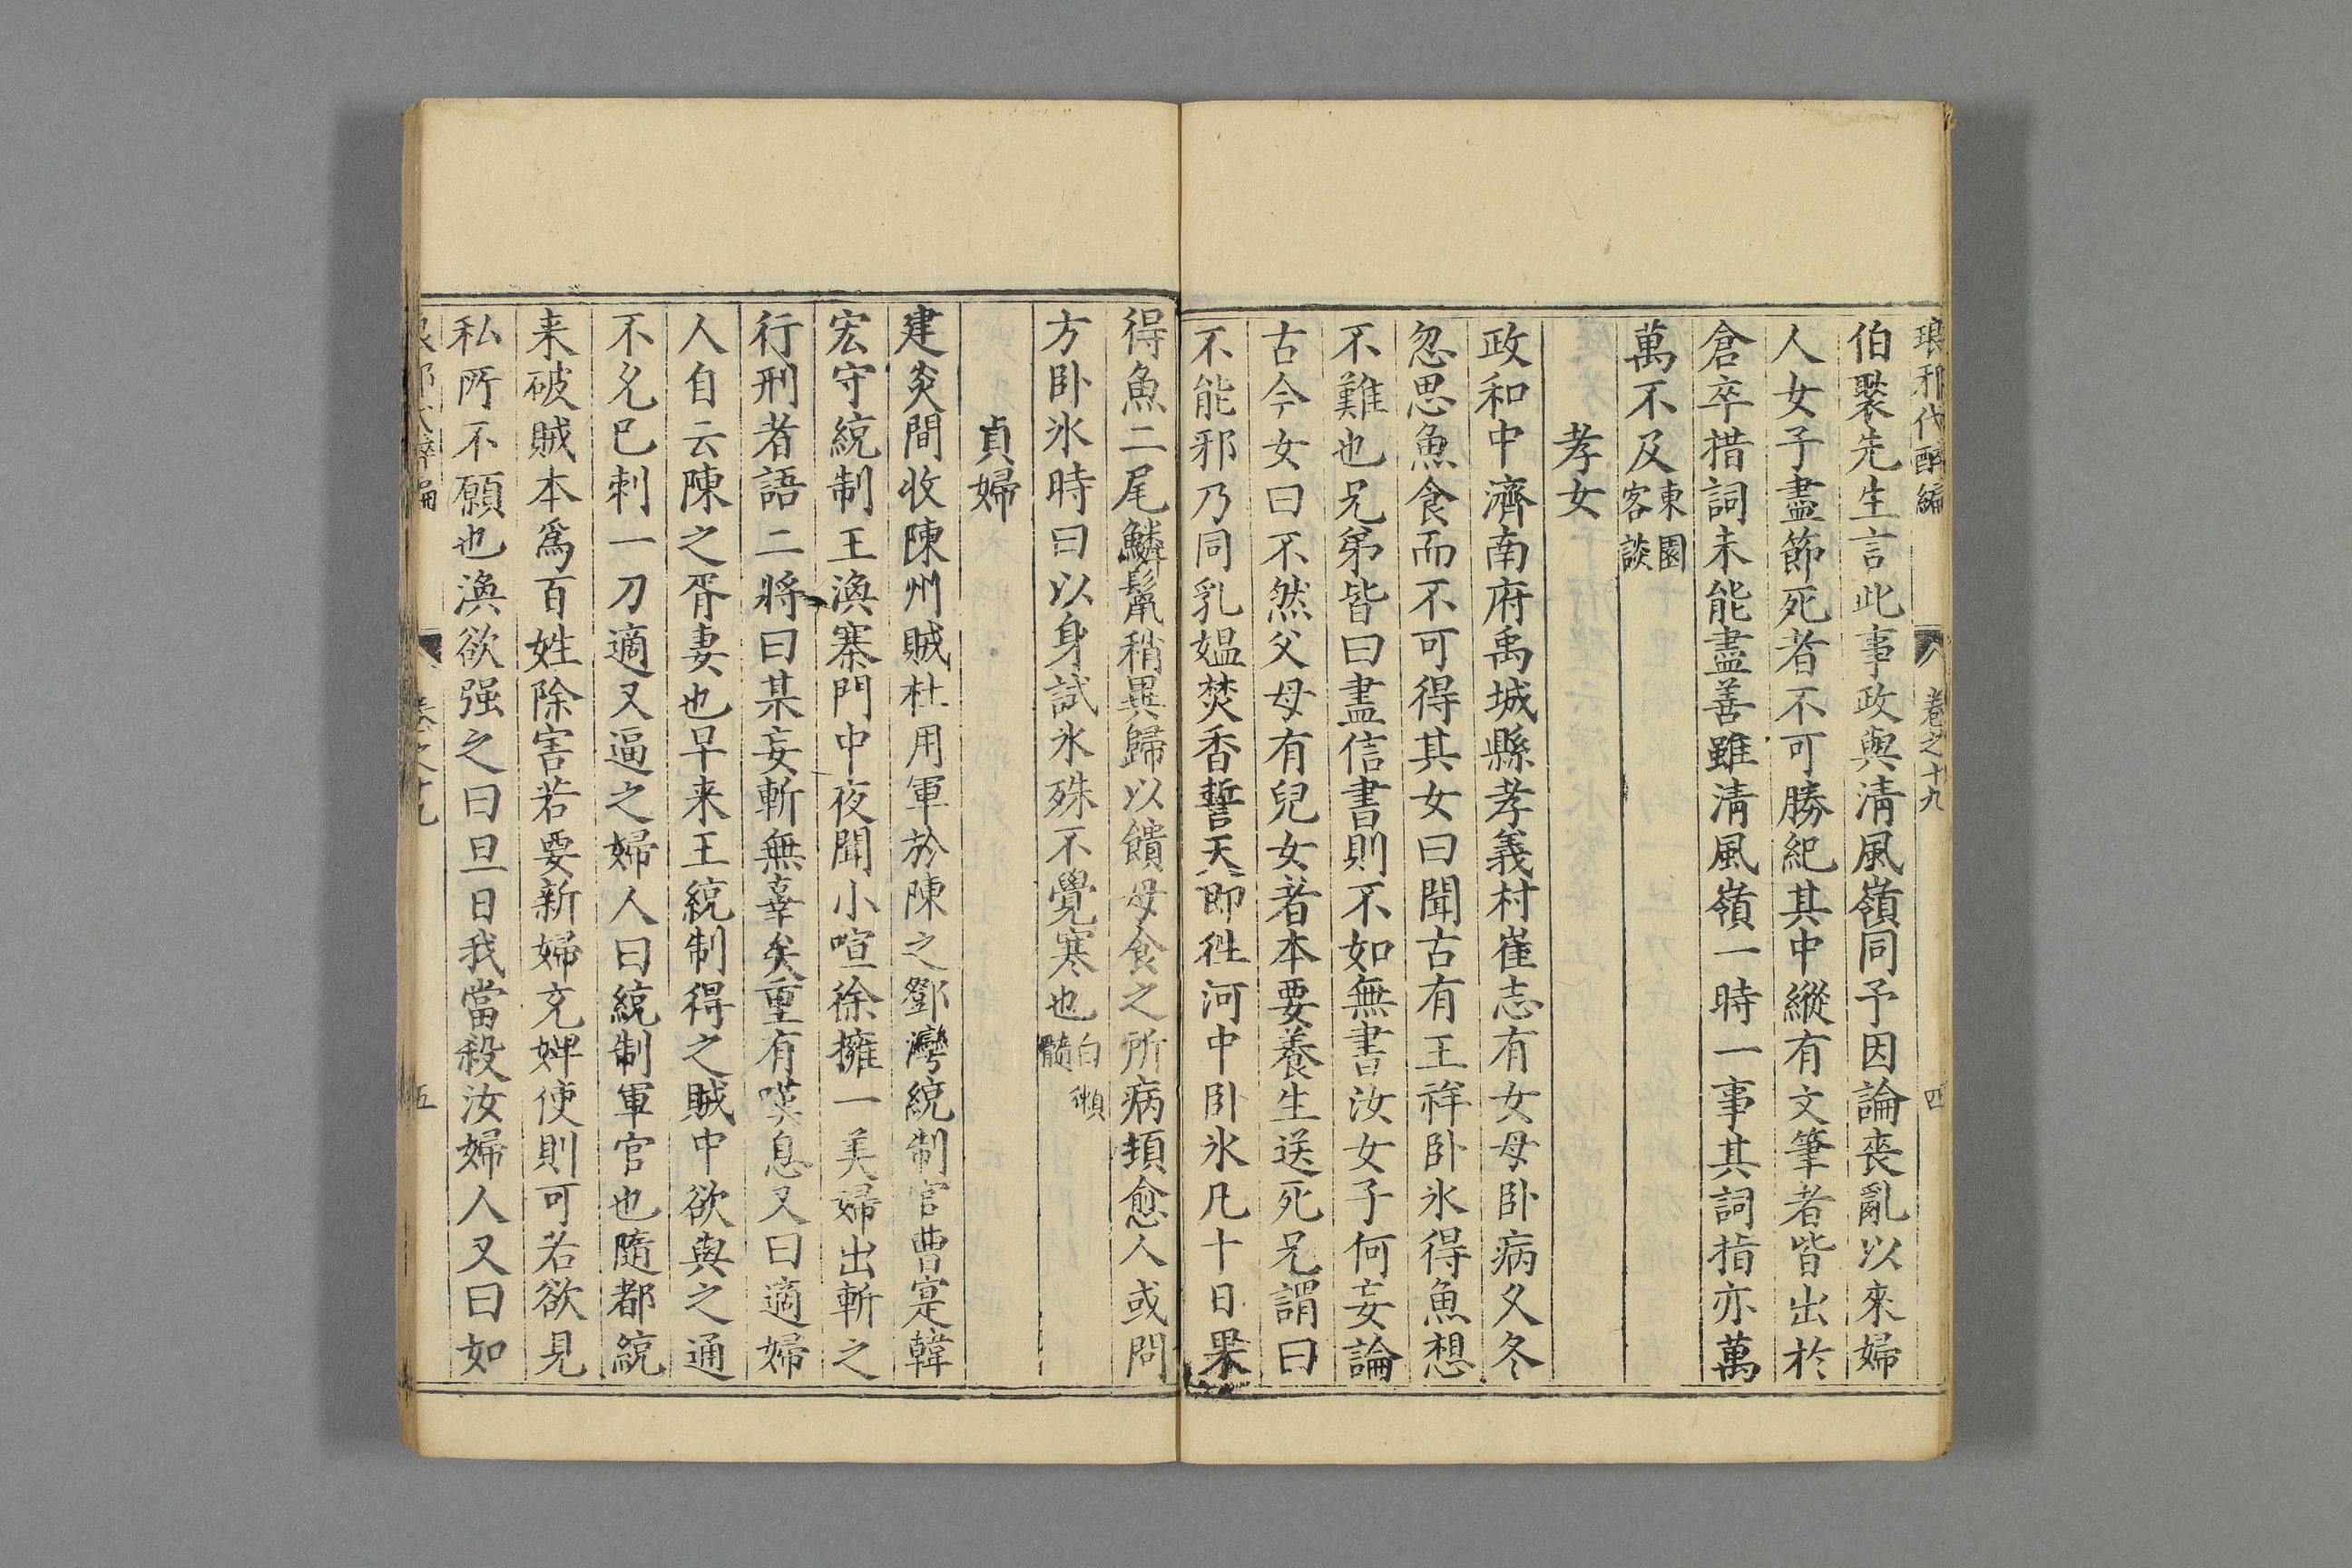 琅邪代醉編 卷之十九 四
伯聚先生言此事政與清風嶺同予因論喪亂以來婦
人女子盡節死者不可勝紀其中縱有文筆者皆出於
倉卒措詞未能盡善雖清風嶺一時一事其詞指亦萬
萬不及東園客談
孝女
政和中濟南府禹城縣孝義村崔志有女母卧病久冬
忽思魚食而不可得其女曰聞古有王祥卧氷得魚想
不難也兄弟皆曰盡信書則不如無書汝女子何妄論
古今女曰不然父母有兒女者本要養生送死兄謂曰
不能邪乃同乳媼焚香誓天即徃河中卧氷凡十日果
得魚二尾鱗鬣稍異歸以饋母食之所病頓愈人或問
方卧氷時曰以身試氷殊不覺寒也白獺髓
貞婦
建炎間收陳州賊杜用軍於陳之鄧灣統制官曹寔韓
宏守統制王渙寨門中夜聞小喧徐擁一美婦出斬之
行刑者語二將曰某妄斬無辜矣重有嘆息又曰適婦
人自云陳之胥妻也早来王統制得之賊中欲與之通
不允巳刺一刀適又逼之婦人曰統制軍官也隨都統
来破賊本爲百姓除害若要新婦充婢使則可若欲見
私所不願也渙欲强之曰旦日我當殺汝婦人又曰如
卷之十九 五